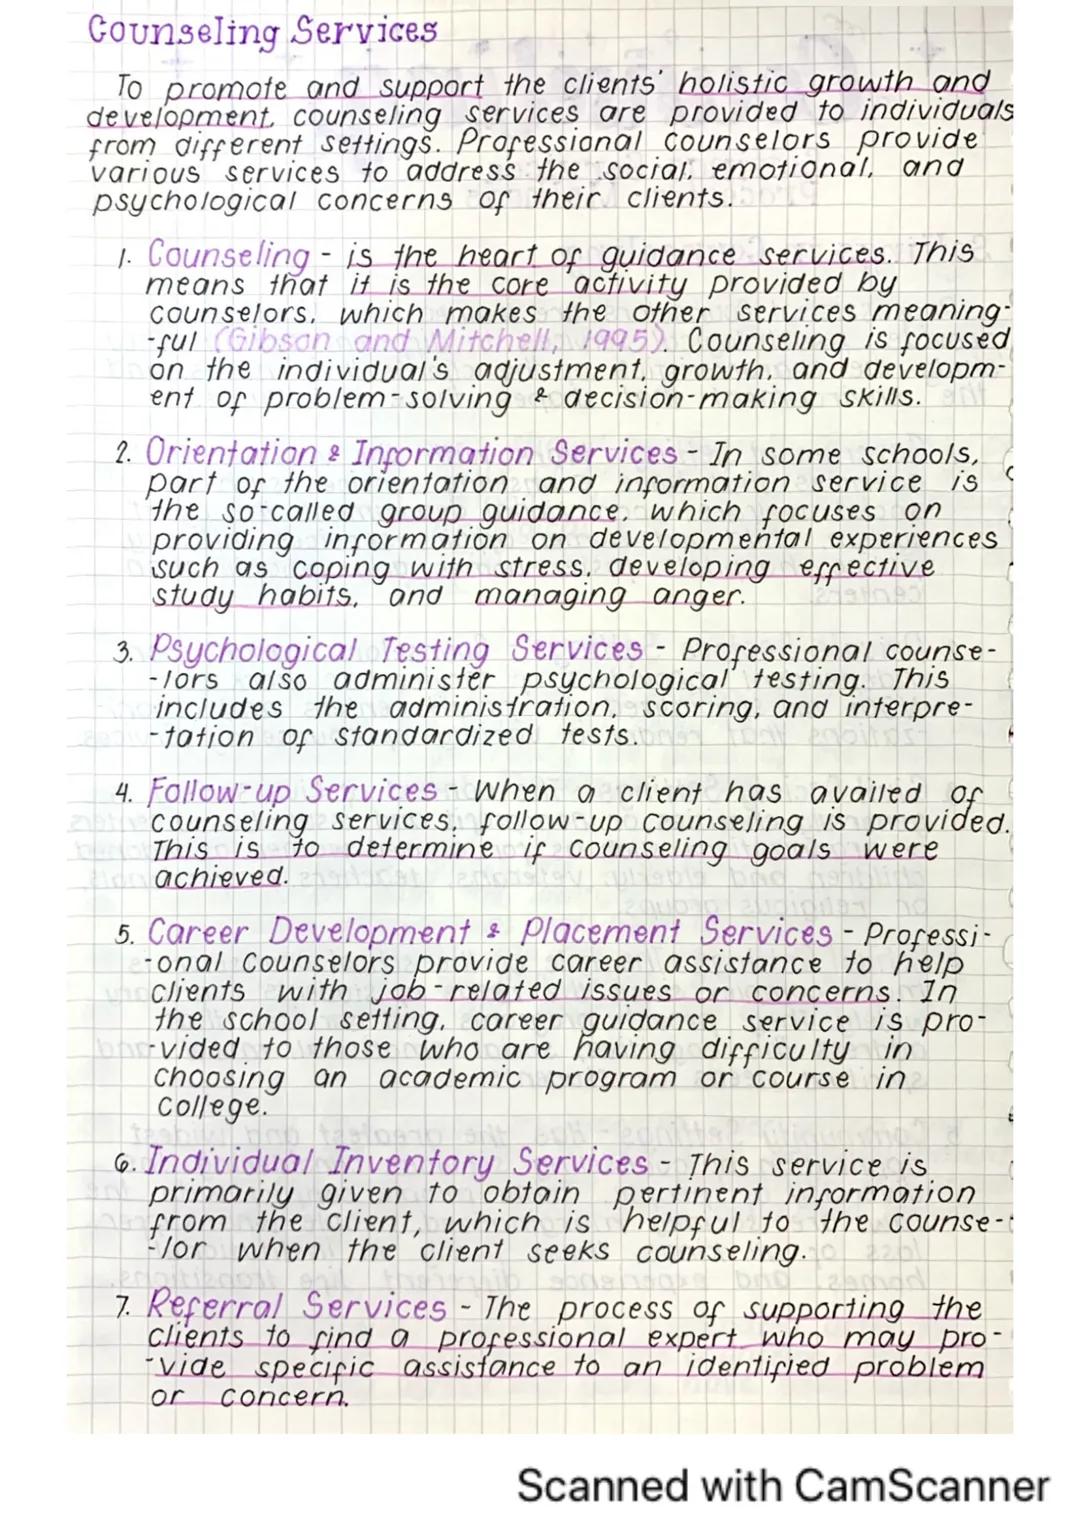 Counseling Services
To promote and support the clients' holistic growth and
development, counseling services are provided to individuals
from different settings. Professional counselors provide
various services to address the social, emotional, and
psychological concerns of their clients.
1. Counseling - is the heart of guidance services. This
means that it is the core activity provided by
counselors, which makes the other services meaning-
-ful (Gibson and Mitchell, 1995). Counseling is focused
on the individual's adjustment, growth, and developm-
ent of problem-solving & decision-making skills.
2. Orientation & Information Services - In some schools,
part of the orientation and information service is
the so-called group guidance, which focuses on
providing information on developmental experiences
such as coping with stress, developing effective
study habits, and managing anger.
3. Psychological Testing Services - Professional counse-
-lors also administer psychological testing. This
includes the administration, scoring, and interpre-
-tation of standardized tests.
4. Follow-up Services - When a client has availed of
counseling services, follow-up counseling is provided.
This is to determine if counseling goals were
achieved.
5. Career Development & Placement Services - Professi-
-onal Counselors provide career assistance to help
clients with job-related issues or concerns. In
the school setting, career guidance service is pro-
-vided to those who are having difficulty in
choosing an academic program or course in
college.
6. Individual Inventory Services - This service is
primarily given to obtain pertinent information
from the client, which is helpful to the counse-
-lor when the client seeks counseling.
7. Referral Services - The process of supporting the
clients to find a professional expert who may pro-
-vide specific assistance to an identified problem
or concern.
Scanned with CamScanner